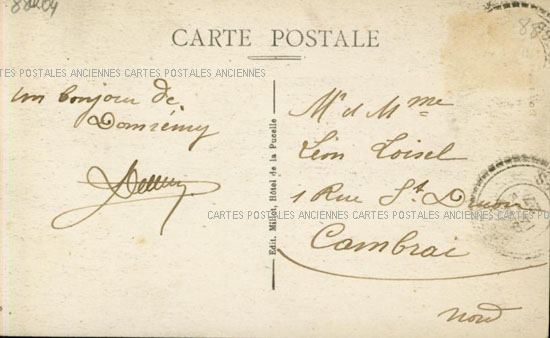 88404
CARTE POSTALE
CARTES POSTALES ANCIENNES CARTES POSTALES ANCIENNES
Un bonjour de
Domrémy
Edit. Millot, Hôtel de la Pucelle
Mr et Mme
Léon Loisel
1 Rue St Druon
CARTES POSTALES ANCIENNES CARTES POSTALES ANCIENNES CARTES POSTALES
Cambrai
Nord